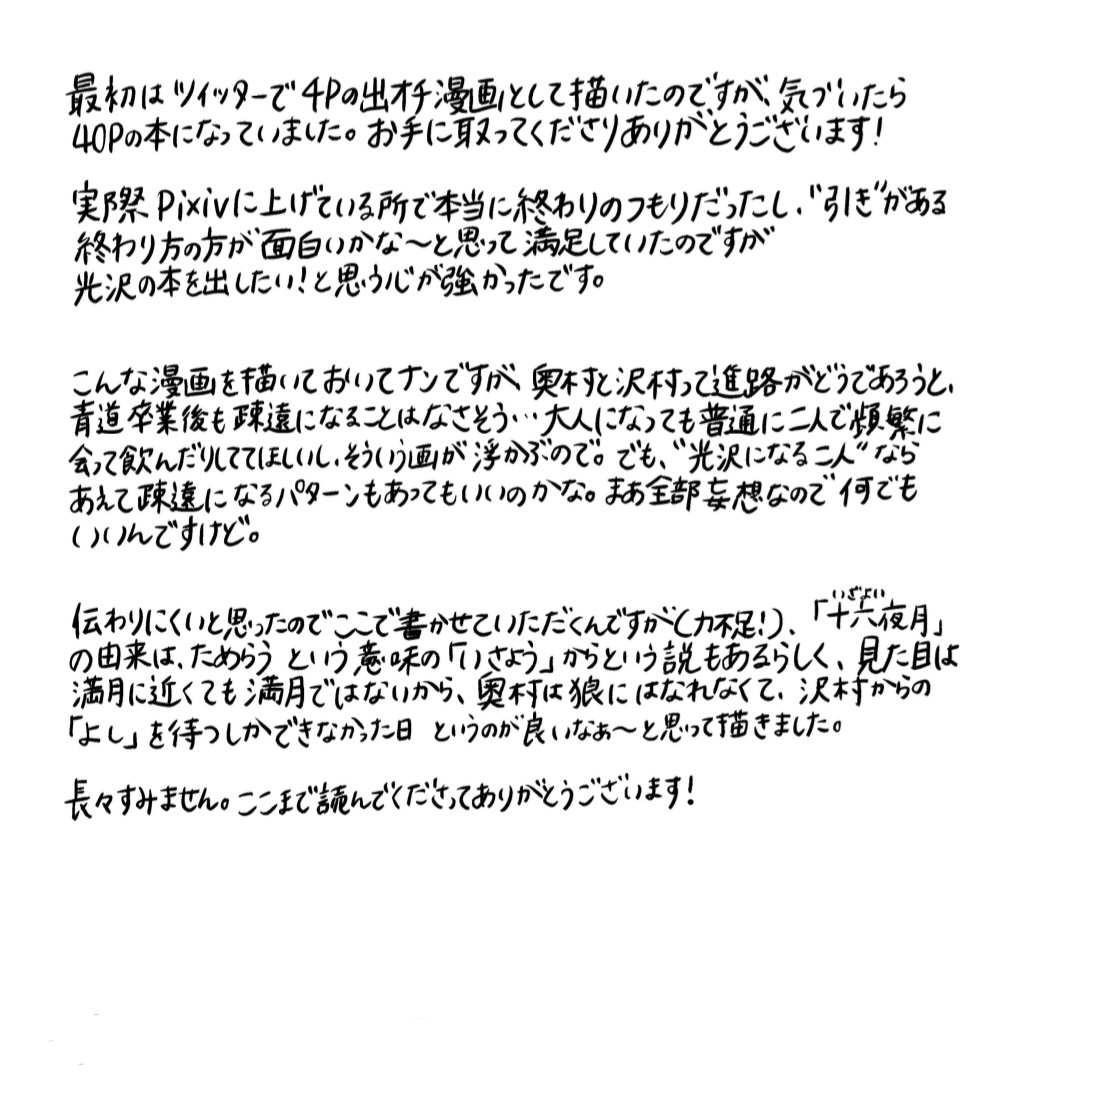 最初はツイッターで4Pの出オチ漫画として描いたのですが、気づいたら
40Pの本になっていました。お手に取ってくださりありがとうございます!
実際Pixivに上げている所で本当に終わりのつもりだったし、"引き"がある
終わり方の方が面白いかな〜と思って満足していたのですが
光沢の本を出したい!と思う心が強かったです。
こんな漫画を描いておいてナンですが、奥村と沢村って進路がどうであろうと、
青道卒業後も疎遠になることはなさそう…大人になっても普通に二人で頻繁に
会って飲んだりしててほしいし、そういう画が浮かぶので。でも、"光沢になる二人"なら
あえて疎遠になるパターンもあってもいいのかな。まあ全部妄想なので何でも
いいんですけど。
伝わりにくいと思ったのでここで書かせていただくんですが(力不足!)、「十六夜月」
いざよい
の由来は、ためらう という意味の「いさよう」からという説もあるらしく、見た目は
満月に近くても満月ではないから、奥村は狼にはなれなくて、沢村からの
「よし」を待つしかできなかった日 というのが良いなぁ〜と思って描きました。
長々すみません。ここまで読んでくださってありがとうございます!